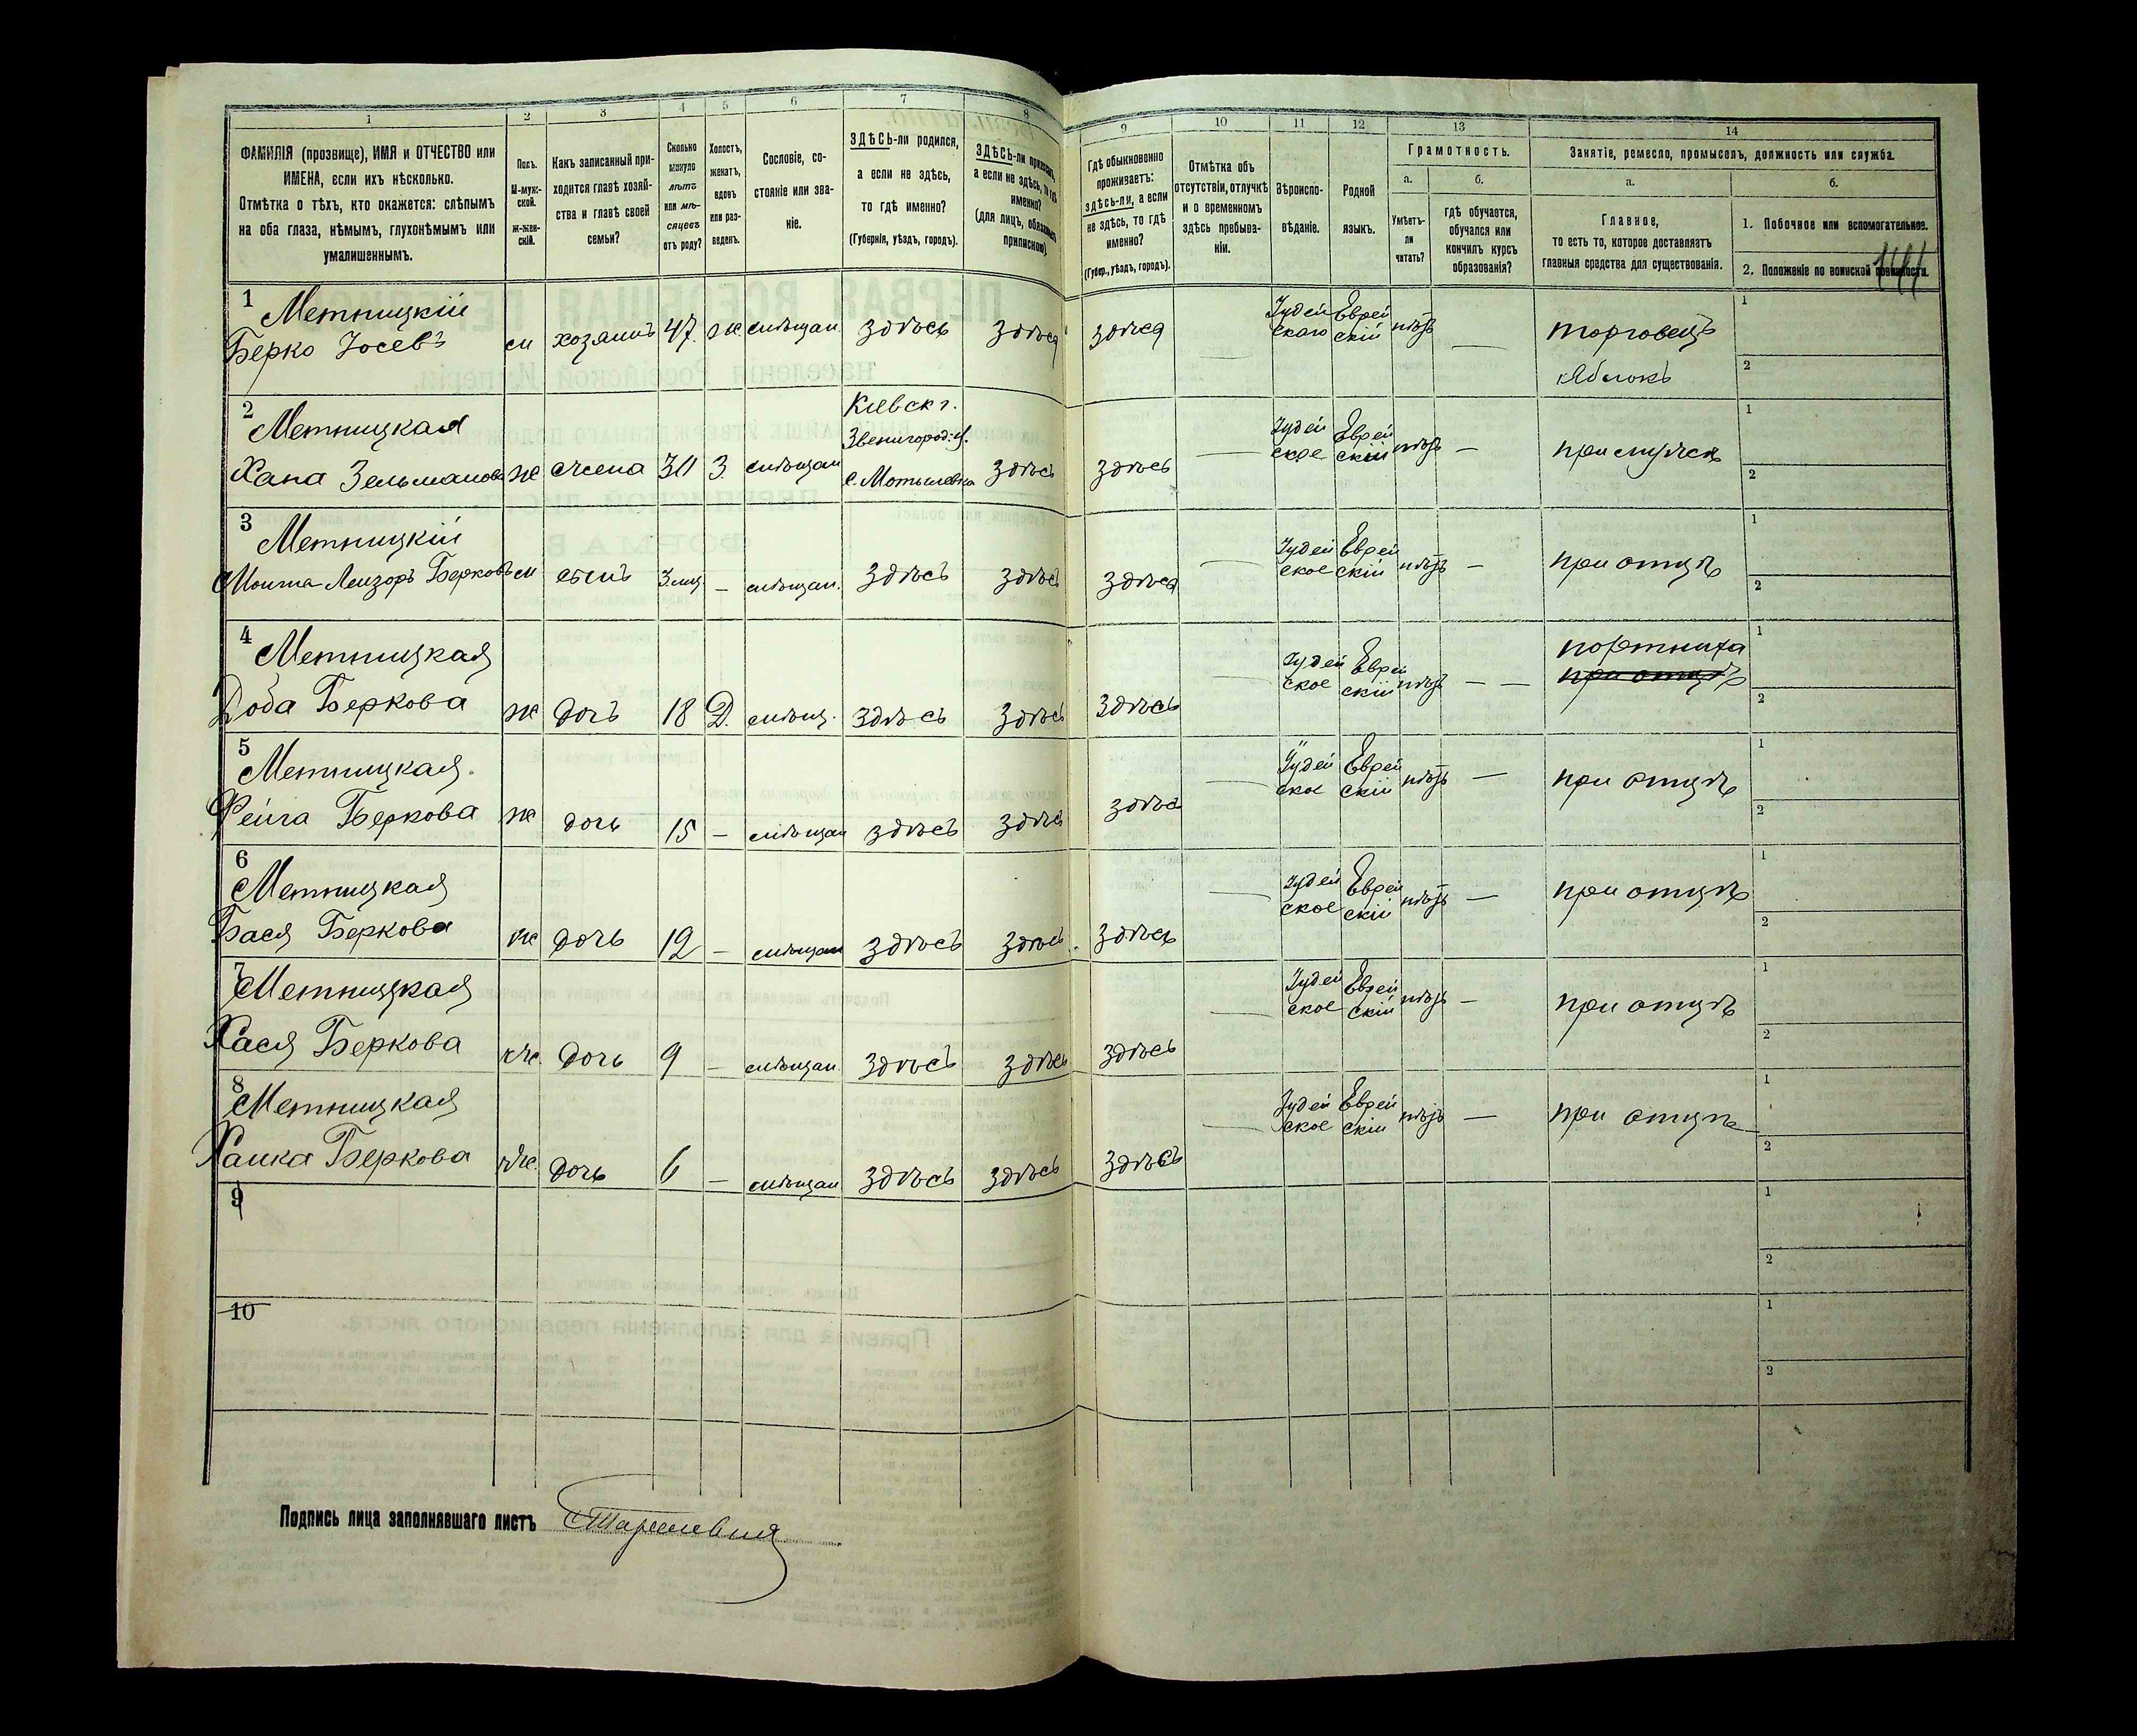 1 2 3 4 5 6 7 8 9 10 11 12 13 14
ФАМИЛІЯ (прозвище), ИМЯ и ОТЧЕСТВО или
ИМЕНА, если ихъ нѣсколько.
Отмѣтка о тѣхъ, кто окажется: слѣпымъ
на оба глаза, нѣмымъ, глухонѣмымъ или
умалишеннымъ.
Полъ.
М-муж-
ской.
Ж-жен-
скій.
Какъ записанный при-
ходится главѣ хозяй-
ства и главѣ своей
семьи?
Сколько
минуло
лѣтъ
или мѣ-
сяцевъ
отъ роду?
Холостъ,
женатъ,
вдовъ
или раз-
веденъ.
Сословіе, со-
стояніе или зва-
ніе.
ЗДѢСЬ-ли родился,
а если не здѣсь,
то гдѣ именно?
(Губернія, уѣздъ, городъ).
ЗДѢСЬ-ли приписанъ,
а если не здѣсь, то гдѣ
именно?
(для лицъ, обязанныхъ
припиской)
Гдѣ обыкновенно
проживаетъ:
здѣсь-ли, а если
не здѣсь, то гдѣ
именно?
(Губер., уѣздъ, городъ).
Отмѣтка объ
отсутствіи, отлучкѣ
и о временномъ
здѣсь пребыва-
ніи.
Вѣроиспо-
вѣданіе.
Родной
языкъ.
Грамотность.
а.
Умѣетъ-
ли
читать?
б.
гдѣ обучается,
обучался или
кончилъ курсъ
образованія?
Занятіе, ремесло, промыселъ, должность или служба.
а.
Главное,
то есть то, которое доставляетъ
главныя средства для существованія.
б.
1. Побочное или вспомогательное.
2. Положеніе по воинской повинности.
1 Метницкій
Берко Іосевъ м хозяинъ 47. ж. мѣщан. здѣсь здѣсь здѣсь — Іудей Еврей нѣтъ — торговецъ 1
скаго скій
яблокъ 2
2 Метницкая
Хана Зельманова ж жена 30 З. мѣщан Кіевск г.
Звенигород. у.
с. Мотылевка здѣсь здѣсь — Іудей Еврей нѣтъ — при мужѣ 1
ское скій 2
3 Метницкій
Моишa-Лейзоръ Берковъ м сынъ 3 мц — мѣщан. здѣсь здѣсь здѣсь — Іудей Еврей нѣтъ — при отцѣ 1
ское скій 2
4 Метницкая
Доба Беркова ж дочъ 18 Д. мѣщ. здѣсь здѣсь здѣсь — Іудей Еврей нѣтъ — — портниха 1
ское скій при отцѣ 2
5 Метницкая
Фейга Беркова ж дочь 15 — мѣщан здѣсь здѣсь здѣсь — Іудей Еврей нѣтъ — при отцѣ 1
ское скій 2
6 Метницкая
Бася Беркова ж дочь 12 — мѣщан здѣсь здѣсь здѣсь — Іудей Еврей нѣтъ — при отцѣ 1
ское скій 2
7 Метницкая
Хася Беркова ж. дочь 9 — мѣщан. здѣсь здѣсь здѣсь — Іудей Еврей нѣтъ — при отцѣ 1
ское скій 2
8 Метницкая
Хаика Беркова ж. дочь 6 — мѣщан здѣсь здѣсь здѣсь — Іудей Еврей нѣтъ — при отцѣ 1
ское скій 2
9 1
2
10 1
2
Подпись лица заполнявшаго листъ